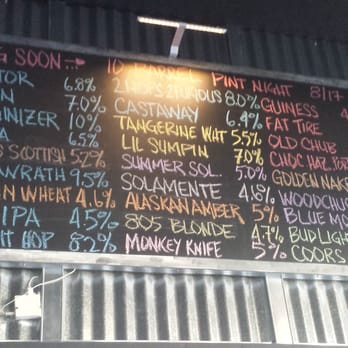 G SOON...
10 BARREL PINT NIGHT 8/17
TOR 6.8% 2 HOPS 2 FURIOUS 8.0% GUINESS 4
N 7.0% CASTAWAY 6.4% FAT TIRE
NIZER 10% TANGERINE WHT 5.5% OLD CHUB
A 6.5% LIL SUMPIN 7.0% CHOC HAZ. POR
S SCOTTISH 5.2% SUMMER SOL. 5.0% GOLDEN NAK
WRATH 9.5% SOLAMENTE 4.8% WOODCHUC
N WHEAT 4.6% ALASKAN AMBER 5% BLUE MO
IPA 4.5% 805 BLONDE 4.7% BUD LIGHT
T HOP 8.2% MONKEY KNIFE 5% COORS